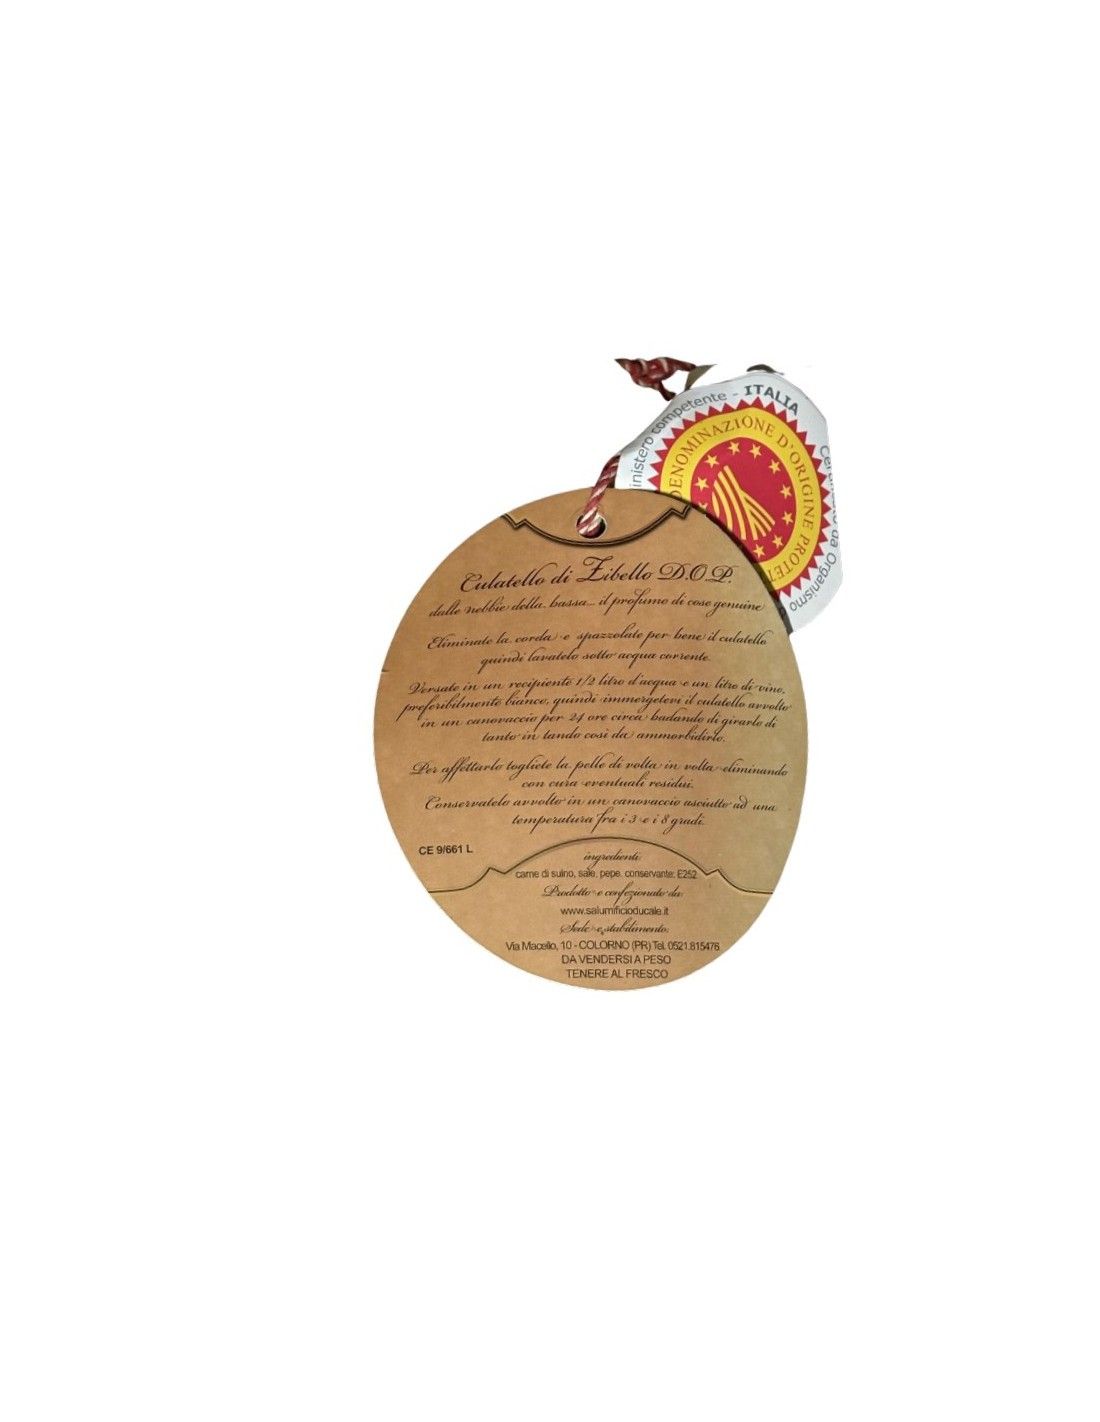 Ministero competente - ITALIA
DENOMINAZIONE D'ORIGINE PROTET
da Organismo
Culatello di Zibello D.O.P.
dalle nebbie della bassa... il profumo di cose genuine
Eliminate la corda e spazzolate per bene il culatello
quindi lavatelo sotto acqua corrente.
Versate in un recipiente 1/2 litro d'acqua e un litro di vino,
preferibilmente bianco, quindi immergetevi il culatello avvolto
in un canovaccio per 24 ore circa badando di girarlo di
tanto in tando così da ammorbidirlo.
Per affettarlo togliete la pelle di volta in volta eliminando
con cura eventuali residui.
Conservatelo avvolto in un canovaccio asciutto ad una
temperatura fra i 3 e i 8 gradi.
CE 9/661 L
ingredienti:
carne di suino, sale, pepe. conservante: E252
Prodotto e confezionato da:
www.salumificioducale.it
Sede e stabilimento:
Via Macello, 10 - COLORNO (PR) Tel. 0521.815476
DA VENDERSI A PESO
TENERE AL FRESCO